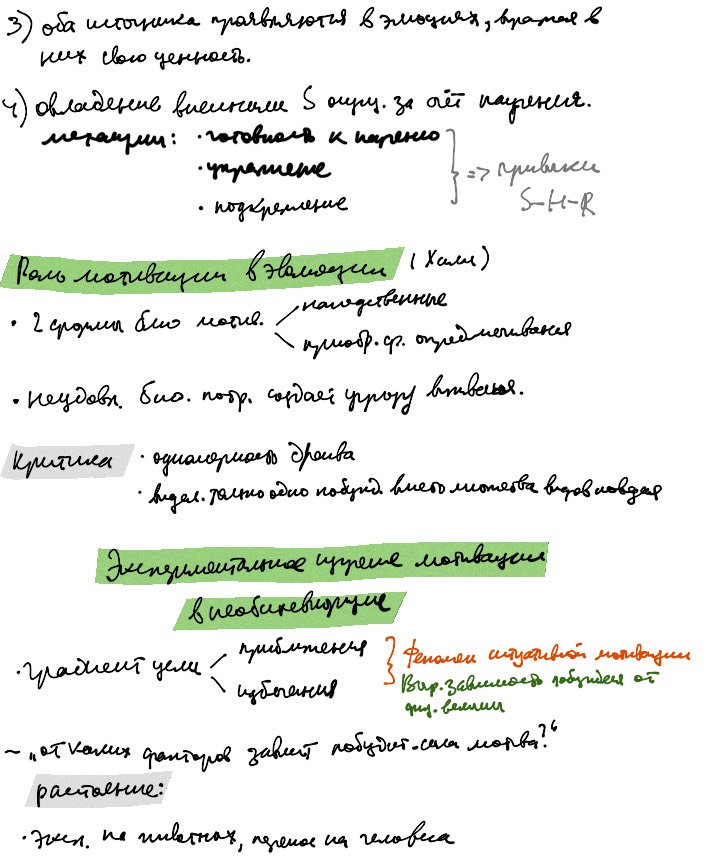 3) оба источника проявляются в эмоциях, выражая в
них свою ценность.
4) овладение внешними S окруж. за счёт научения.
• готовность к научению
• упражнение
• подкрепление
} => привычки
S-H-R
Роль мотивации в эволюции (Халл)
• 2 формы био мотив.
наследственные
приобр. ф. опредмечивания
• Неудовл. био. потр. создаёт угрозу выживания.
Критика
• одномерность драйва
• выдел. только одно побужд. вместо множества видов поведения
Экспериментальное изучение мотивации
в необихевиоризме
• градиент цели
приближения
избегания
} Феномен ситуативной мотивации
Выр. зависимость побуждения от
физ. величин
~ „от каких факторов зависит побудит. сила мотива?“
расстояние:
• Эксп. на животных, перенос на человека